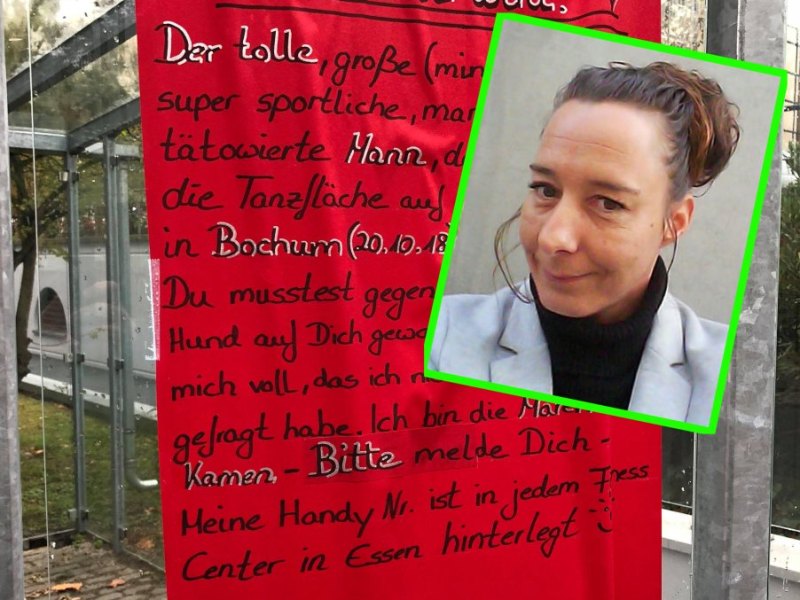 Der tolle, große (min
super sportliche, mar
tätowierte Mann, d
die Tanzfläche auf
in Bochum (20.10.18)
Du musstest gegen
Hund auf Dich gewa
mich voll, das ich n
gefragt habe. Ich bin die Maren
Kamen, - Bitte melde Dich -
Meine Handy Nr. ist in jedem Fitness
Center in Essen hinterlegt :)